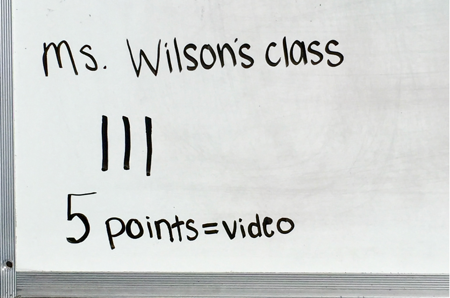 Ms. Wilson's class
|||
5 points=video